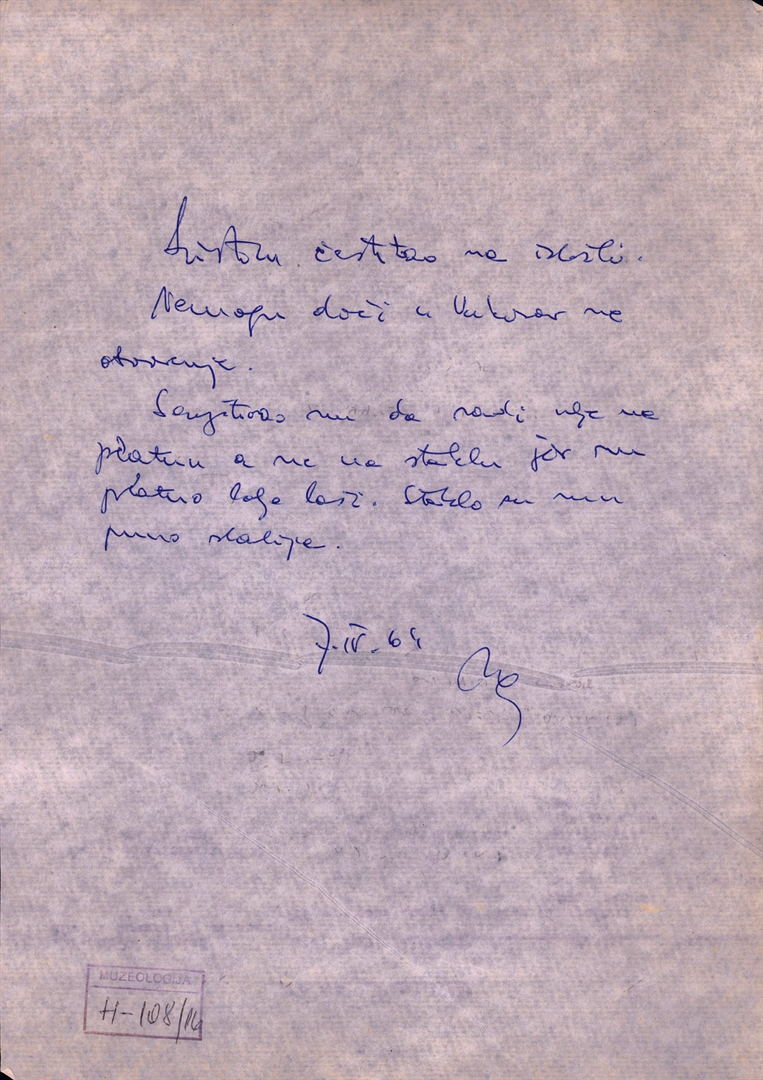 čestitao na izložbi.
Nemogu doći u Vukovar na
otvorenje.
Sugjerirao mu da radi ulje na
platnu a ne na staklu jer mu
platno bolje leži. Stakla su mu
puno slabija.
7.IV.64
MUZEOLOGIJA
H-108/14